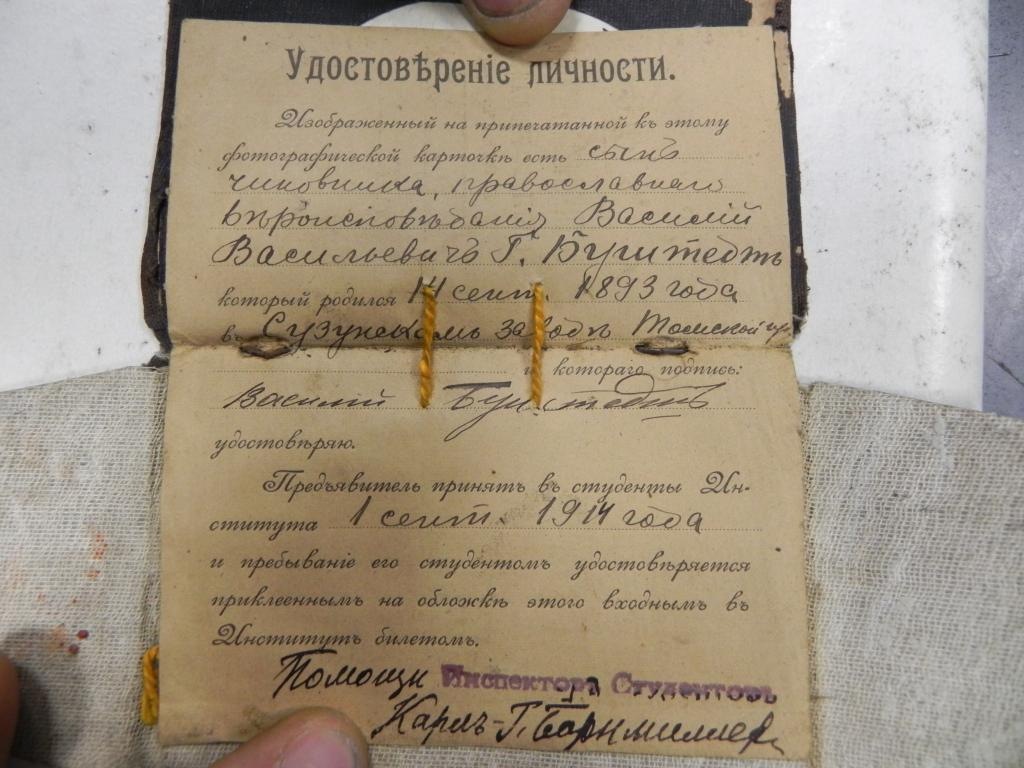 Удостовѣреніе личности.
Изображенный на припечатанной къ этому
фотографической карточкѣ есть сынъ
чиновника, православнаго
вѣроисповѣданія Василій
Васильевичъ Г. Бунштедтъ
который родился 14 сент. 1893 года
въ Сузунскомъ заводѣ Томской губ.
и котораго подпись:
Василій Бунштедтъ
удостовѣряю.
Предъявитель принятъ въ студенты Ин-
ститута 1 сент. 1914 года
и пребываніе его студентомъ удостовѣряется
приклееннымъ на обложкѣ этого входнымъ въ
Институтъ билетомъ.
Помощн Инспектора Студентовъ
Карлъ-Г.